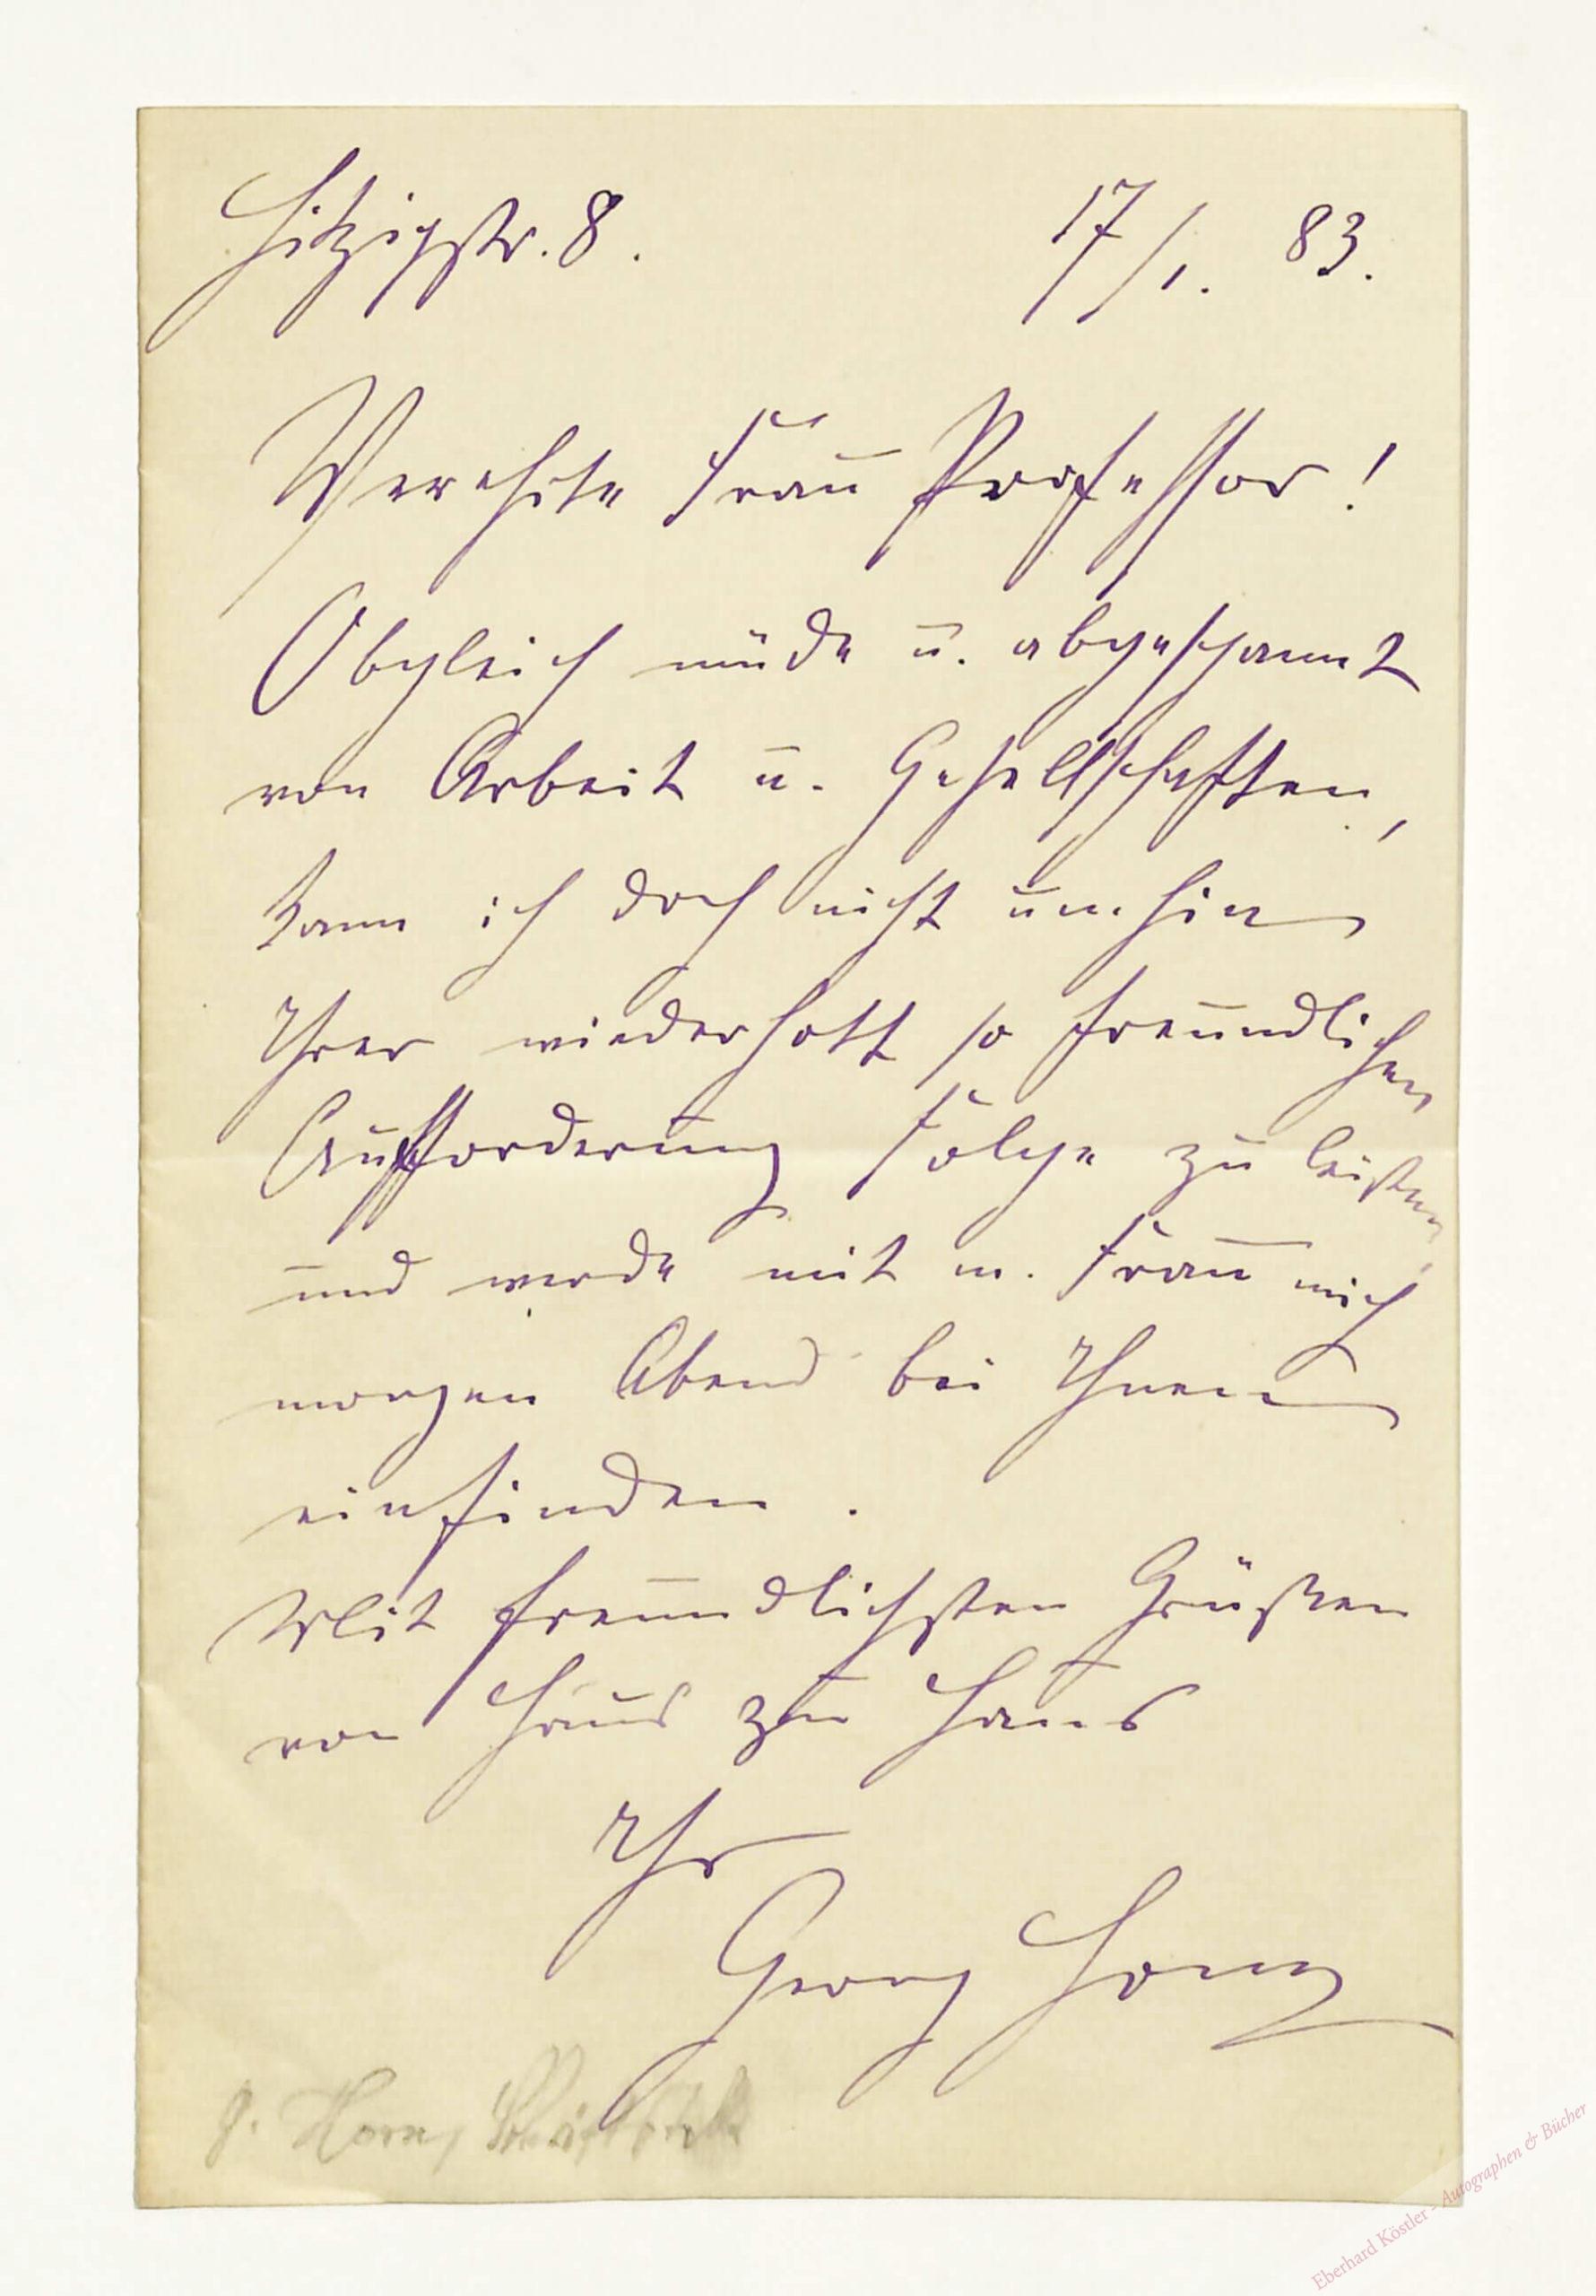 Hitzigstr. 8.
17/1. 83.
Verehrte Frau Professor!
Obgleich müde u. abgespannt
von Arbeit u. Gesellschaften,
kann ich doch nicht umhin
Ihrer wiederholt so freundlichen
Aufforderung Folge zu leisten
und werde mit m. Frau mich
morgen Abend bei Ihnen
einfinden.
Mit freundlichsten Grüßen
von Haus zu Haus
Ihr
Georg Horn
G. Horn,
Eberhard Köstler - Autographen & Bücher